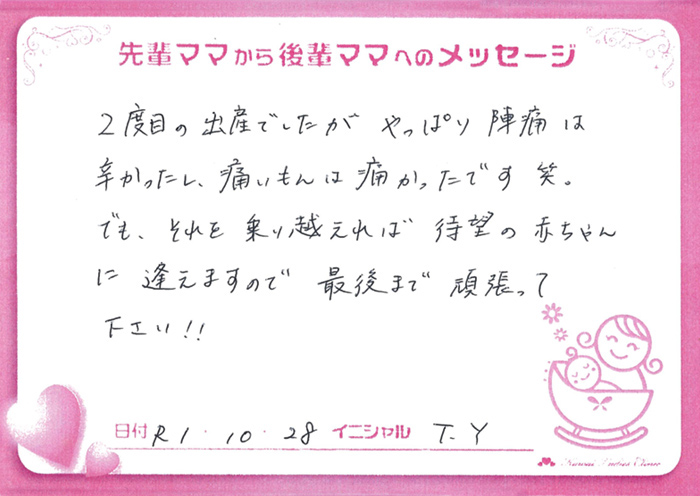 先輩ママから後輩ママへのメッセージ
2度目の出産でしたが やっぱり 陣痛は
辛かったし、痛いもんは痛かったです 笑。
でも、それを乗り越えれば 待望の赤ちゃん
に 逢えますので 最後まで 頑張って
下さい!!
日付 R1・10・28 イニシャル T.Y